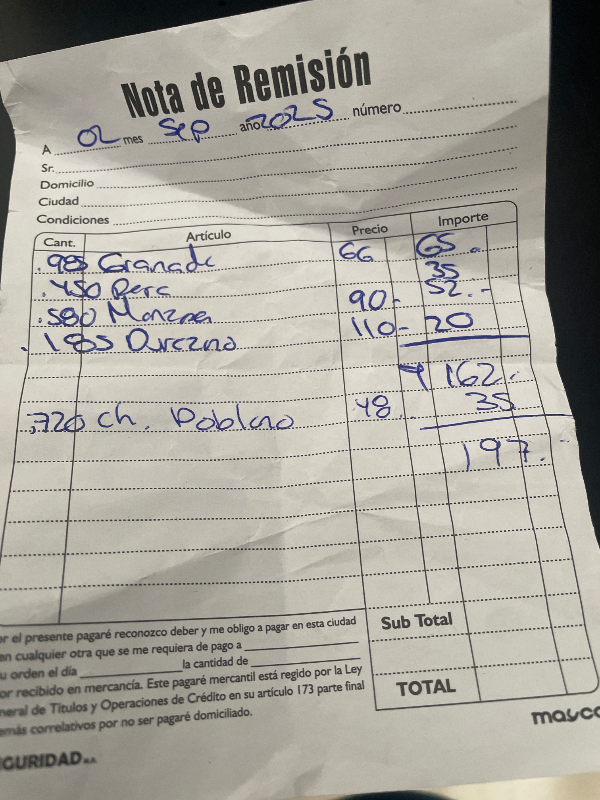 Nota de Remisión
A 02 mes Sep año 2025 número
Sr.
Domicilio
Ciudad
Condiciones
Cant. Artículo Precio Importe
.985 Granada 66 65.
.450 Pera 35
.580 Manzna 90- 52.-
.185 Durazno 110- 20
162.
.720 ch. Poblano 48. 35
197.-
or el presente pagaré reconozco deber y me obligo a pagar en esta ciudad
en cualquier otra que se me requiera de pago a
u orden el día la cantidad de
or recibido en mercancía. Este pagaré mercantil está regido por la Ley
neral de Títulos y Operaciones de Crédito en su artículo 173 parte final
emás correlativos por no ser pagaré domiciliado.
Sub Total
TOTAL
GURIDAD
masco